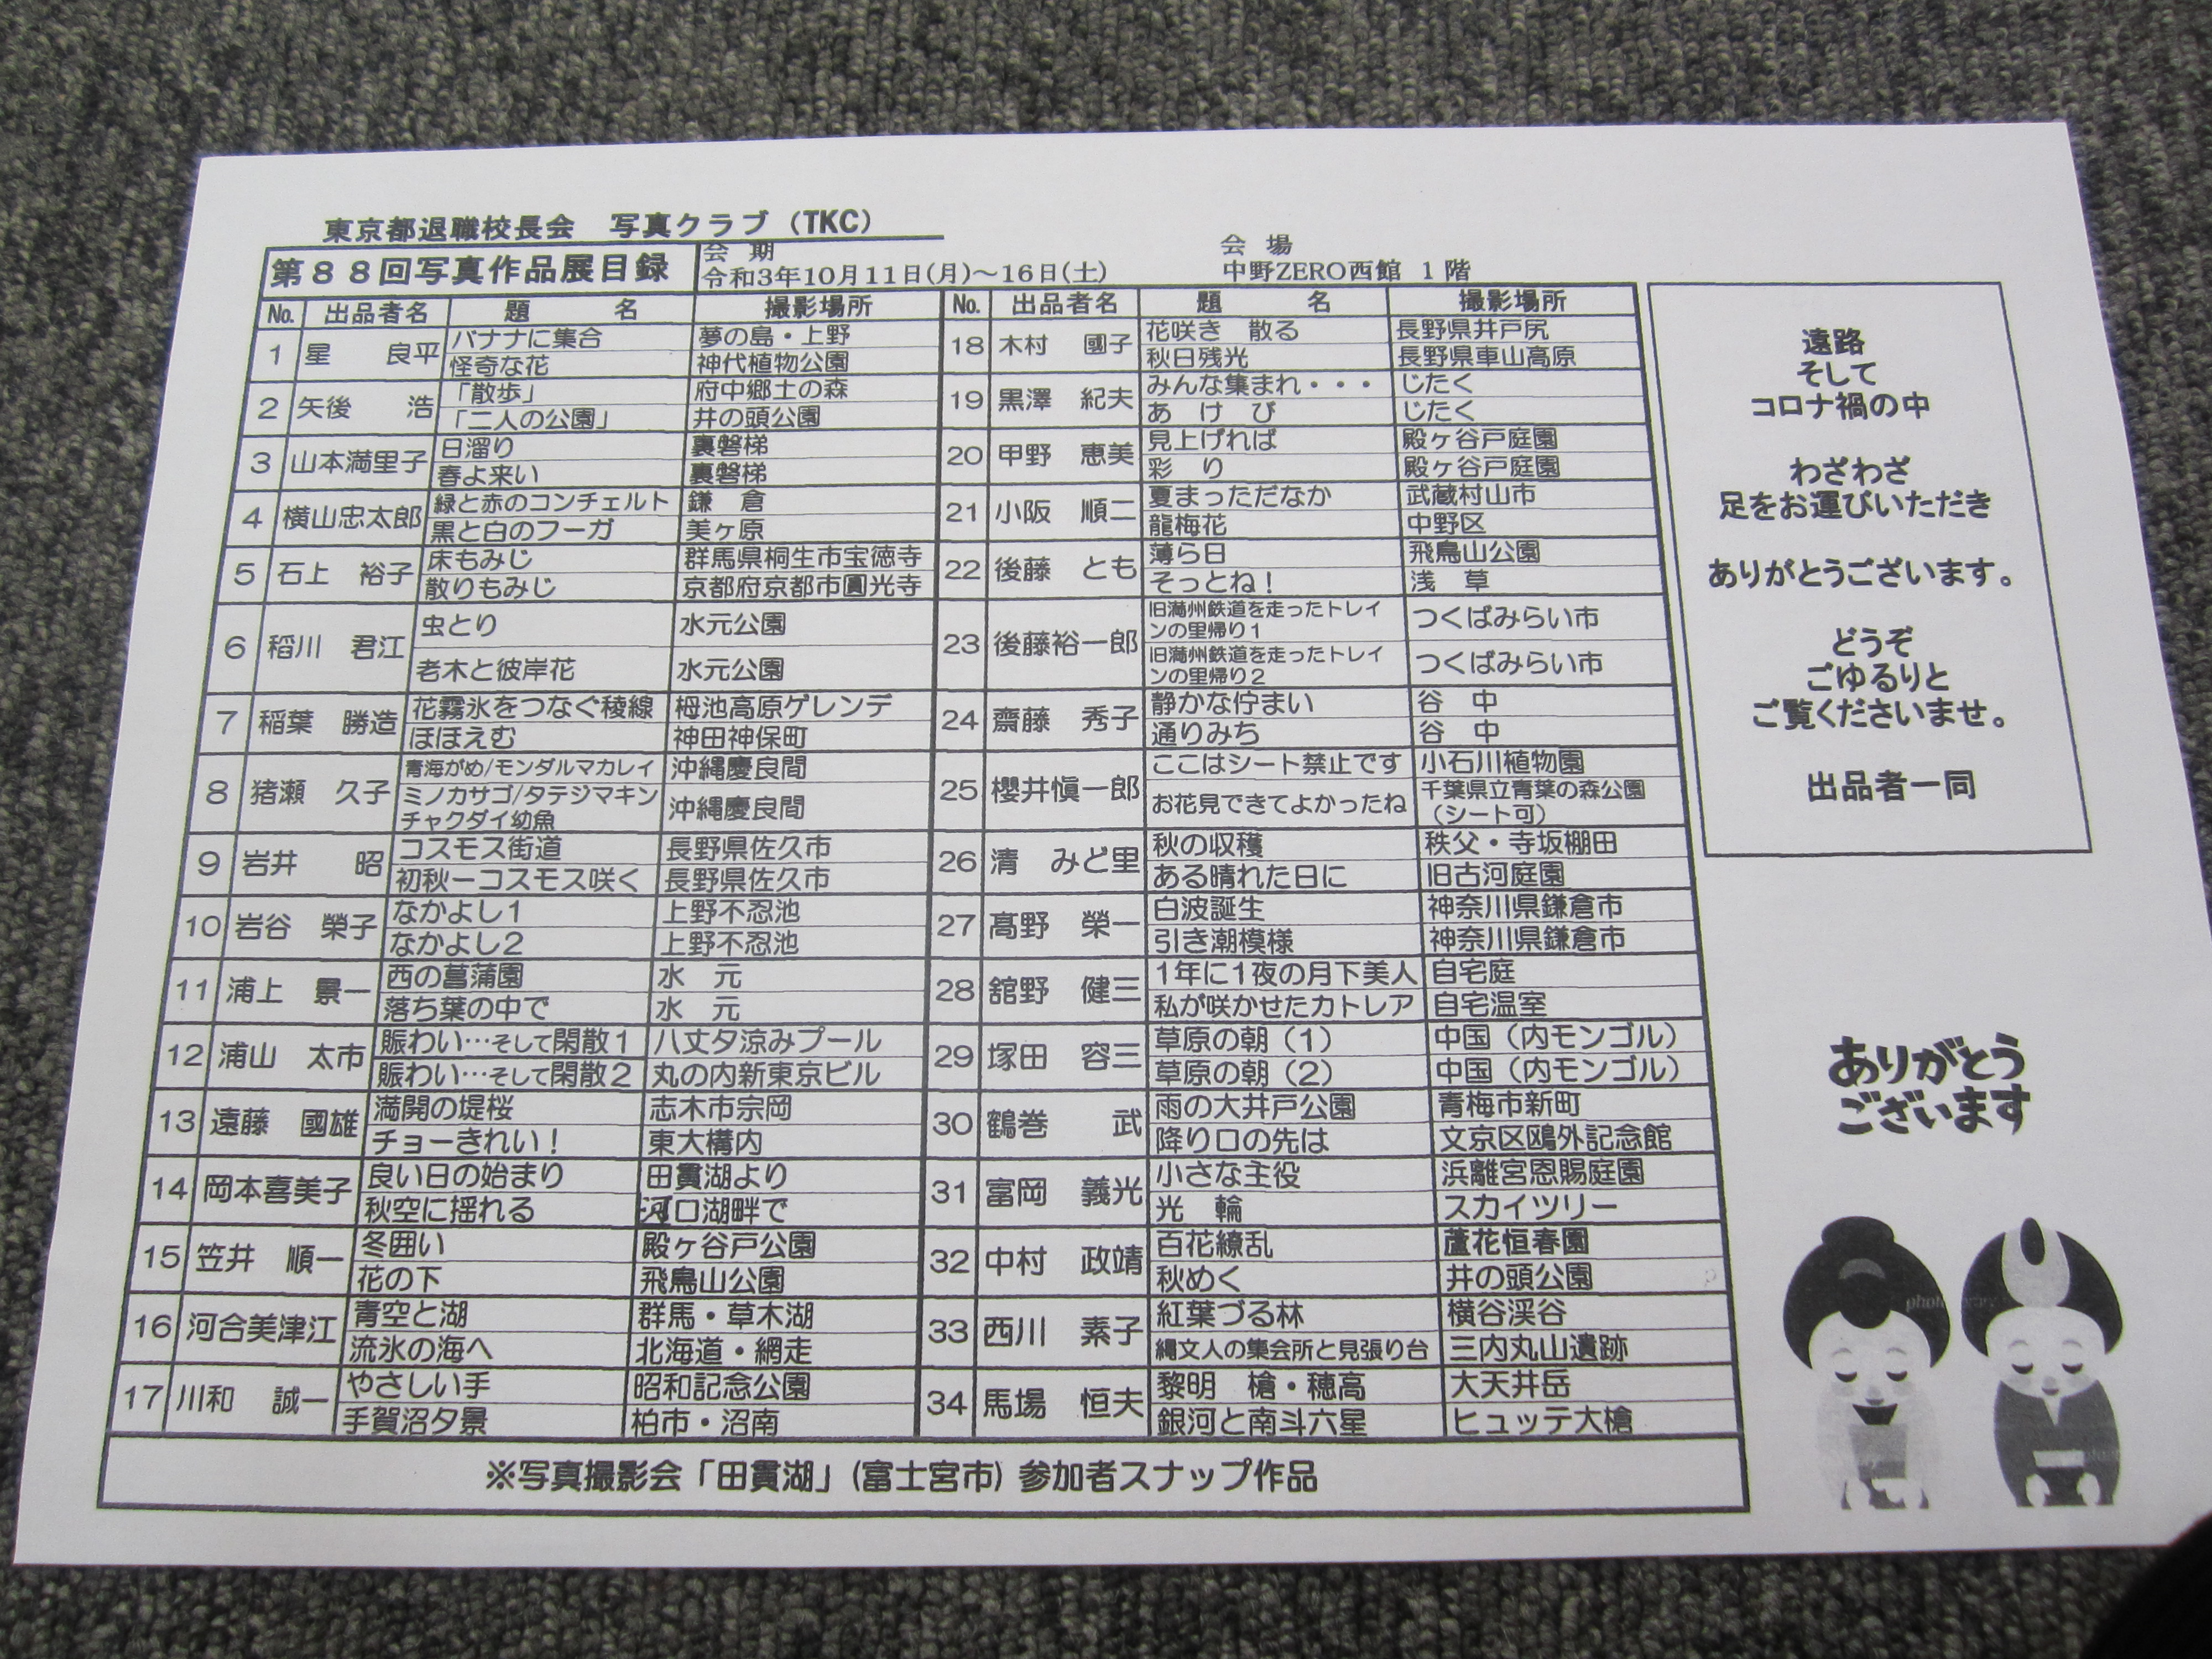 東京都退職校長会　写真クラブ（TKC）
第８８回写真作品展目録
会　期
令和3年10月11日(月)～16日(土)
会　場
中野ZERO西館 １階
No. 出品者名 題　名 撮影場所
1 星　良平 バナナに集合 夢の島・上野
怪奇な花 神代植物公園
2 矢後　浩 「散歩」 府中郷土の森
「二人の公園」 井の頭公園
3 山本満里子 日溜り 裏磐梯
春よ来い 裏磐梯
4 横山忠太郎 緑と赤のコンチェルト 鎌　倉
黒と白のフーガ 美ヶ原
5 石上　裕子 床もみじ 群馬県桐生市宝徳寺
散りもみじ 京都府京都市圓光寺
6 稻川　君江 虫とり 水元公園
老木と彼岸花 水元公園
7 稲葉　勝造 花霧氷をつなぐ稜線 栂池高原ゲレンデ
ほほえむ 神田神保町
8 猪瀬　久子 青海がめ/モンダルマカレイ 沖縄慶良間
ミノカサゴ/タテジマキン
チャクダイ幼魚 沖縄慶良間
9 岩井　昭 コスモス街道 長野県佐久市
初秋ーコスモス咲く 長野県佐久市
10 岩谷　榮子 なかよし1 上野不忍池
なかよし2 上野不忍池
11 浦上　景一 西の菖蒲園 水　元
落ち葉の中で 水　元
12 浦山　太市 賑わい…そして閑散1 八丈夕涼みプール
賑わい…そして閑散2 丸の内新東京ビル
13 遠藤　國雄 満開の堤桜 志木市宗岡
チョーきれい！ 東大構内
14 岡本喜美子 良い日の始まり 田貫湖より
秋空に揺れる 河口湖畔で
15 笠井　順一 冬囲い 殿ヶ谷戸公園
花の下 飛鳥山公園
16 河合美津江 青空と湖 群馬・草木湖
流氷の海へ 北海道・網走
17 川和　誠一 やさしい手 昭和記念公園
手賀沼夕景 柏市・沼南
No. 出品者名 題　名 撮影場所
18 木村　國子 花咲き　散る 長野県井戸尻
秋日残光 長野県車山高原
19 黒澤　紀夫 みんな集まれ・・・ じたく
あ　け　び じたく
20 甲野　恵美 見上げれば 殿ヶ谷戸庭園
彩　り 殿ヶ谷戸庭園
21 小阪　順二 夏まっただなか 武蔵村山市
龍梅花 中野区
22 後藤　とも 薄ら日 飛鳥山公園
そっとね！ 浅　草
23 後藤裕一郎 旧満州鉄道を走ったトレイ
ンの里帰り1 つくばみらい市
旧満州鉄道を走ったトレイ
ンの里帰り2 つくばみらい市
24 齋藤　秀子 静かな佇まい 谷　中
通りみち 谷　中
25 櫻井愼一郎 ここはシート禁止です 小石川植物園
お花見できてよかったね 千葉県立青葉の森公園
（シート可）
26 清　みど里 秋の収穫 秩父・寺坂棚田
ある晴れた日に 旧古河庭園
27 髙野　榮一 白波誕生 神奈川県鎌倉市
引き潮模様 神奈川県鎌倉市
28 舘野　健三 1年に1夜の月下美人 自宅庭
私が咲かせたカトレア 自宅温室
29 塚田　容三 草原の朝（1） 中国（内モンゴル）
草原の朝（2） 中国（内モンゴル）
30 鶴巻　武 雨の大井戸公園 青梅市新町
降り口の先は 文京区鴎外記念館
31 富岡　義光 小さな主役 浜離宮恩賜庭園
光　輪 スカイツリー
32 中村　政靖 百花繚乱 蘆花恒春園
秋めく 井の頭公園
33 西川　素子 紅葉づる林 横谷渓谷
縄文人の集会所と見張り台 三内丸山遺跡
34 馬場　恒夫 黎明　槍・穂高 大天井岳
銀河と南斗六星 ヒュッテ大槍
※写真撮影会「田貫湖」(富士宮市) 参加者スナップ作品
遠路
そして
コロナ禍の中
わざわざ
足をお運びいただき
ありがとうございます。
どうぞ
ごゆるりと
ご覧くださいませ。
出品者一同
ありがとう
ございます